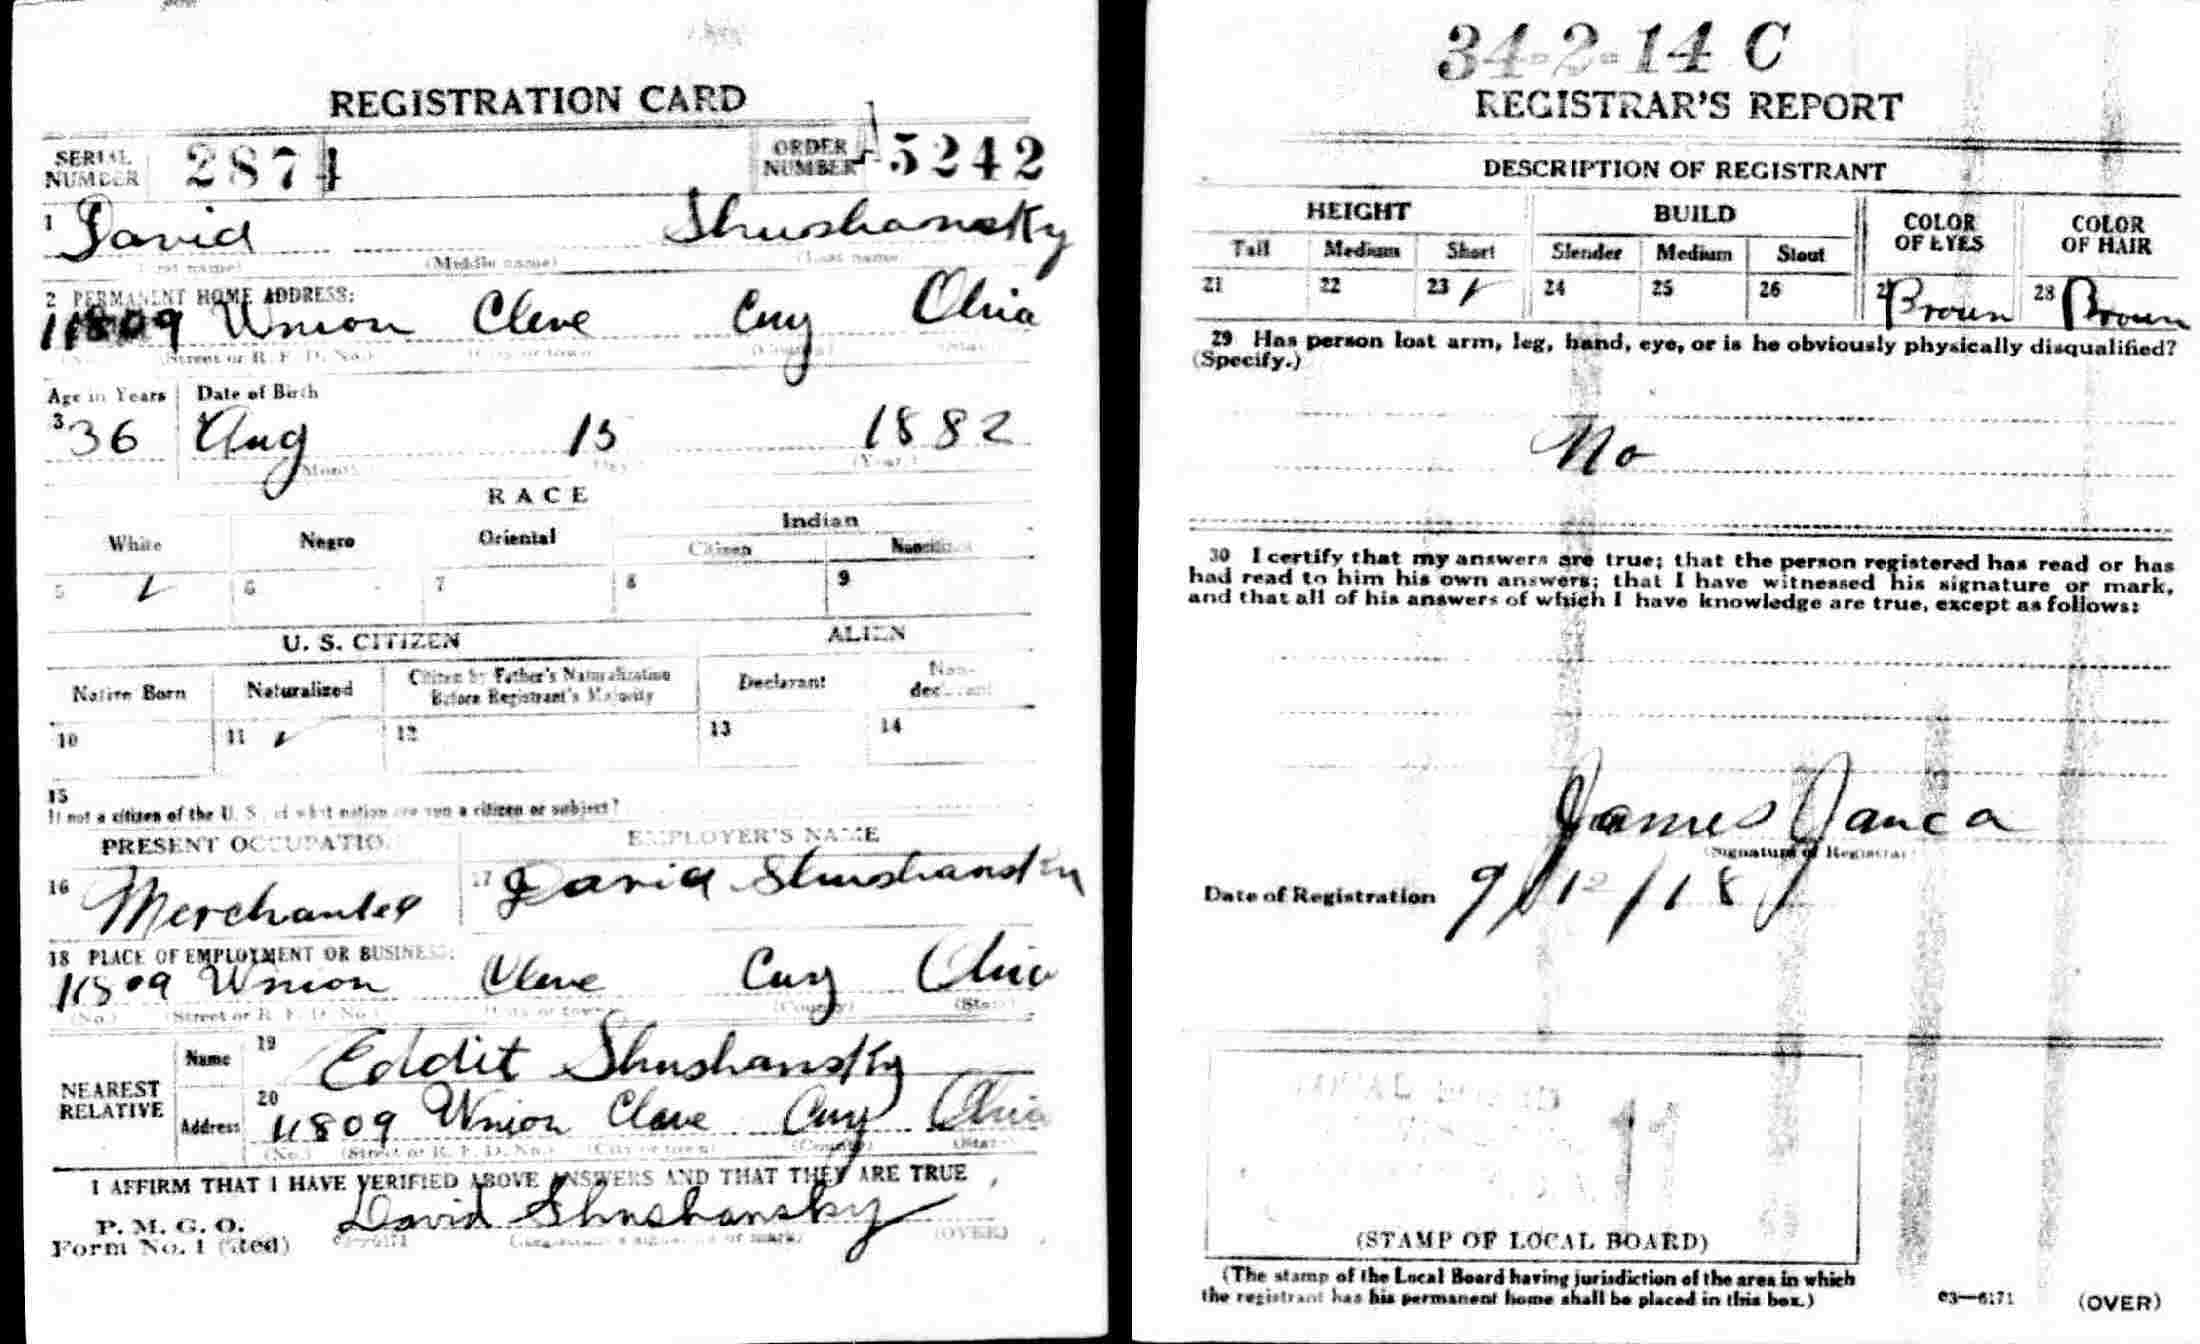 REGISTRATION CARD
SERIAL NUMBER 2874 ORDER NUMBER 5242
1 David Shushansky
(First name) (Middle name) (Last name)
2 PERMANENT HOME ADDRESS:
11809 Union Cleve Cuy Ohio
(No.) (Street or R. F. D. No.) (City or town) (County) (State)
Age in Years Date of Birth
3 36 Aug 15 1882
(Month) (Day) (Year)
RACE
White Negro Oriental Indian
Citizen Noncitizen
5 ✓ 6 7 8 9
U. S. CITIZEN ALIEN
Native Born Naturalized Citizen by Father's Naturalization Before Registrant's Majority Declarant Non-declarant
10 11 ✓ 12 13 14
15
If not a citizen of the U. S., of what nation are you a citizen or subject?
PRESENT OCCUPATION EMPLOYER'S NAME
16 17 David Shushansky
18 PLACE OF EMPLOYMENT OR BUSINESS:
11809 Union Cleve Cuy Ohio
(No.) (Street or R. F. D. No.) (City or town) (County) (State)
NEAREST RELATIVE
Name 19 Eddit Shushansky
Address 20 11809 Union Cleve Cuy Ohio
(No.) (Street or R. F. D. No.) (City or town) (County) (State)
I AFFIRM THAT I HAVE VERIFIED ABOVE ANSWERS AND THAT THEY ARE TRUE
P. M. G. O.
Form No. 1 (Red) David Shushansky
(Registrant's signature or mark) (OVER)
34-2-14 C
REGISTRAR'S REPORT
DESCRIPTION OF REGISTRANT
HEIGHT BUILD COLOR OF EYES COLOR OF HAIR
Tall Medium Short Slender Medium Stout
21 22 23 ✓ 24 25 26 27 Brown 28 Brown
29 Has person lost arm, leg, hand, eye, or is he obviously physically disqualified?
(Specify.)
No
30 I certify that my answers are true; that the person registered has read or has
had read to him his own answers; that I have witnessed his signature or mark,
and that all of his answers of which I have knowledge are true, except as follows:
James Janca
(Signature of Registrar)
Date of Registration 9/12/18
11
(STAMP OF LOCAL BOARD)
(The stamp of the Local Board having jurisdiction of the area in which
the registrant has his permanent home shall be placed in this box.)
03—6171 (OVER)